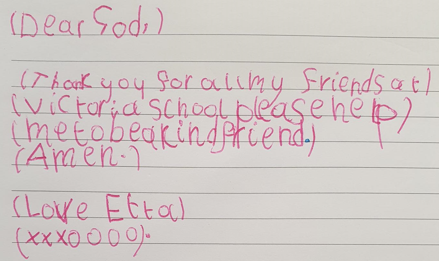 (Dear God,)
(Thank you for all my friends at)
(Victoria school please help)
(me to be a kind friend.)
(Amen.)
(Love Etta)
(xxx0000).